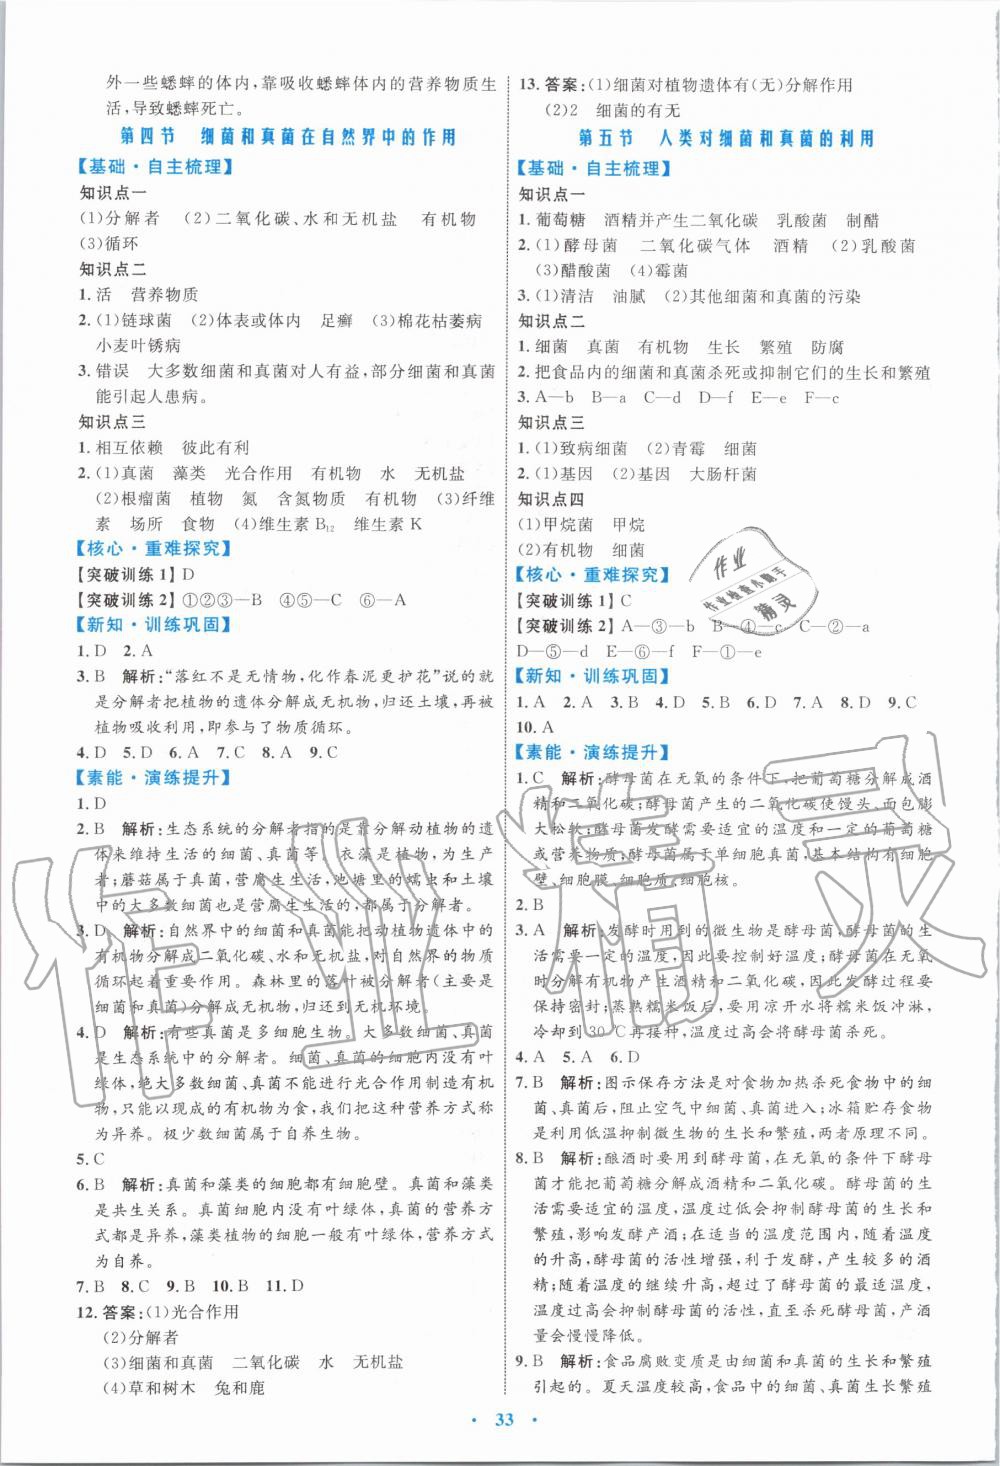 外一些蟋蟀的体内,靠吸收蟋蟀体内的营养物质生
活,导致蟋蟀死亡。
第四节 细菌和真菌在自然界中的作用
【基础·自主梳理】
知识点一
(1)分解者 (2)二氧化碳、水和无机盐 有机物
(3)循环
知识点二
1. 活 营养物质
2. (1)链球菌 (2)体表或体内 足癣 (3)棉花枯萎病
小麦叶锈病
3. 错误 大多数细菌和真菌对人有益,部分细菌和真菌
能引起人患病。
知识点三
1. 相互依赖 彼此有利
2. (1)真菌 藻类 光合作用 有机物 水 无机盐
(2)根瘤菌 植物 氮 含氮物质 有机物 (3)纤维
素 场所 食物 (4)维生素 B₁₂ 维生素 K
【核心·重难探究】
【突破训练 1】D
【突破训练 2】①②③—B ④⑤—C ⑥—A
【新知·训练巩固】
1. D 2. A
3. B 解析:“落红不是无情物,化作春泥更护花”说的
就是分解者把植物的遗体分解成无机物,归还土壤,再被
植物吸收利用,即参与了物质循环。
4. D 5. D 6. A 7. C 8. A 9. C
【素能·演练提升】
1. D
2. B 解析:生态系统的分解者指的是靠分解动植物的遗
体来维持生活的细菌、真菌等。衣藻是植物,为生产
者;蘑菇属于真菌,营腐生生活,池塘里的蠕虫和土壤
中的大多数细菌也是营腐生生活的,都属于分解者。
3. D 解析:自然界中的细菌和真菌能把动植物遗体中的
有机物分解成二氧化碳、水和无机盐,对自然界的物质
循环起着重要作用。森林里的落叶被分解者(主要是
细菌和真菌)分解成无机物,归还到无机环境。
4. D 解析:有些真菌是多细胞生物。大多数细菌、真菌
是生态系统中的分解者。细菌、真菌的细胞中没有叶
绿体,绝大多数细菌、真菌不能进行光合作用制造有机
物,只能以现成的有机物为食,我们把这种营养方式称
为异养。极少数细菌属于自养生物。
5. C
6. B 解析:真菌和藻类的细胞都有细胞壁。真菌和藻类
是共生关系。真菌细胞中没有叶绿体,真菌的营养方
式为异养;藻类植物的细胞一般有叶绿体,营养方式
为自养。
7. B 8. C 9. B 10. B 11. D
12. 答案:(1)光合作用
(2)分解者
(3)细菌和真菌 二氧化碳 水 无机盐
(4)草和树木 兔和鹿
13. 答案:(1)细菌对植物遗体有(无)分解作用
(2)2 细菌的有无
第五节 人类对细菌和真菌的利用
【基础·自主梳理】
知识点一
1. 葡萄糖 酒精并产生二氧化碳 乳酸菌 制醋
2. (1)酵母菌 二氧化碳气体 酒精 (2)乳酸菌
(3)醋酸菌 (4)霉菌
3. (1)清洁 油腻 (2)其他细菌和真菌的污染
知识点二
1. 细菌 真菌 有机物 生长 繁殖 防腐
2. 把食品内的细菌和真菌杀死或抑制它们的生长和繁殖
3. A—b B—a C—d D—f E—e F—c
知识点三
1. (1)致病细菌 (2)青霉 细菌
2. (1)基因 (2)基因 大肠杆菌
知识点四
(1)甲烷菌 甲烷
(2)有机物 细菌
【核心·重难探究】
【突破训练 1】C
【突破训练 2】A—③—b B—④—c C—②—a
D—⑤—d E—⑥—f F—①—e
【新知·训练巩固】
1. A 2. A 3. B 4. D 5. B 6. D 7. A 8. D 9. C
10. A
【素能·演练提升】
1. C 解析:酵母菌在无氧的条件下,把葡萄糖分解成酒
精和二氧化碳;酵母菌产生的二氧化碳使馒头、面包膨
大松软;酵母菌发酵需要适宜的温度和一定的葡萄糖
或营养物质;酵母菌属于单细胞真菌,基本结构有细胞
壁、细胞膜、细胞质、细胞核。
2. B
3. A 解析:发酵时用到的微生物是酵母菌,酵母菌的生
活需要一定的温度,因此要控制好温度;酵母菌在无氧
时分解有机物产生酒精和二氧化碳,因此发酵过程要
保持密封;蒸熟糯米饭后,要用凉开水将糯米饭冲淋,
冷却到30 ℃再接种,温度过高会将酵母菌杀死。
4. A 5. A 6. D
7. B 解析:图示保存方法是对食物加热杀死食物中的细
菌、真菌后,阻止空气中细菌、真菌进入;冰箱贮存食物
是用低温抑制微生物的生长和繁殖,两者原理不同。
8. B 解析:酿酒时要用到酵母菌,在无氧的条件下酵母
菌才能把葡萄糖分解成酒精和二氧化碳。酵母菌的生
活需要适宜的温度,温度过低会抑制酵母菌的生长和
繁殖,影响发酵产酒;在适当的温度范围内,随着温度
的升高,酵母菌的活性增强,利于发酵,产生较多的酒
精;随着温度的继续升高,超过了酵母菌的最适温度,
温度过高会抑制酵母菌的活性,直至杀死酵母菌,产酒
量会慢慢降低。
9. B 解析:食品腐败变质是由细菌和真菌的生长和繁殖
引起的。夏天温度较高,食品中的细菌、真菌生长繁殖
· 33 ·
作业
作业检查小助手
精灵
作业精灵